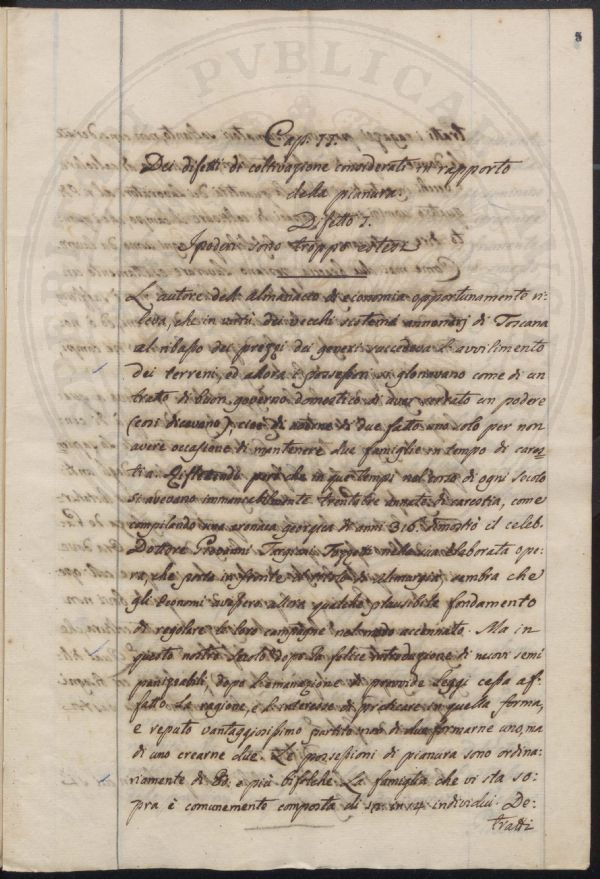 Cap. II.
Dei difetti di coltivazione considerati in rapporto
della pianura.
Difetto I.
I poderi sono troppo estesi
L'autore dell'almanacco di economia opportunamente ri-
leva, che in virtù dei vecchi annonarj di Toscana
al ribasso dei prezzi dei generi succedeva l'avvilimento
dei terreni, ed allora i possessori si gloriavano come di un
tratto di buon governo domestico di aver serrato un podere
(così dicevano) cioè di averne di due fatto uno solo per non
avere occasione di mantenere due famiglie in tempo di cares-
tia. Riflettendo però che in que' tempi nel corso di ogni secolo
si avevano immancabilmente trentatre annate di carestia, come
compilando una cronaca georgica di anni 316. dimostrò il celeb.
Dottore Giovanni Targioni Tozzetti nella sua elaborata ope-
ra, che porta in fronte il titolo di Alimurgia, sembra che
gli Economi avessero allora qualche plausibile fondamento
di regolare le loro campagne nel modo accennato. Ma in
questo nostro secolo dopo la felice introduzione di nuovi semi
panizzabili, dopo l'emanazione di provvide Leggi cessa af-
fatto la ragione, e l'interesse di praticare in quella forma,
e reputo vantaggiosissimo partito non di due formarne uno, ma
di uno crearne due. Le possessioni di pianura sono ordina-
riamente di e più bifolche. La famiglia che vi sta so-
pra è comunemente composta di in 14 individui. De-
tratti